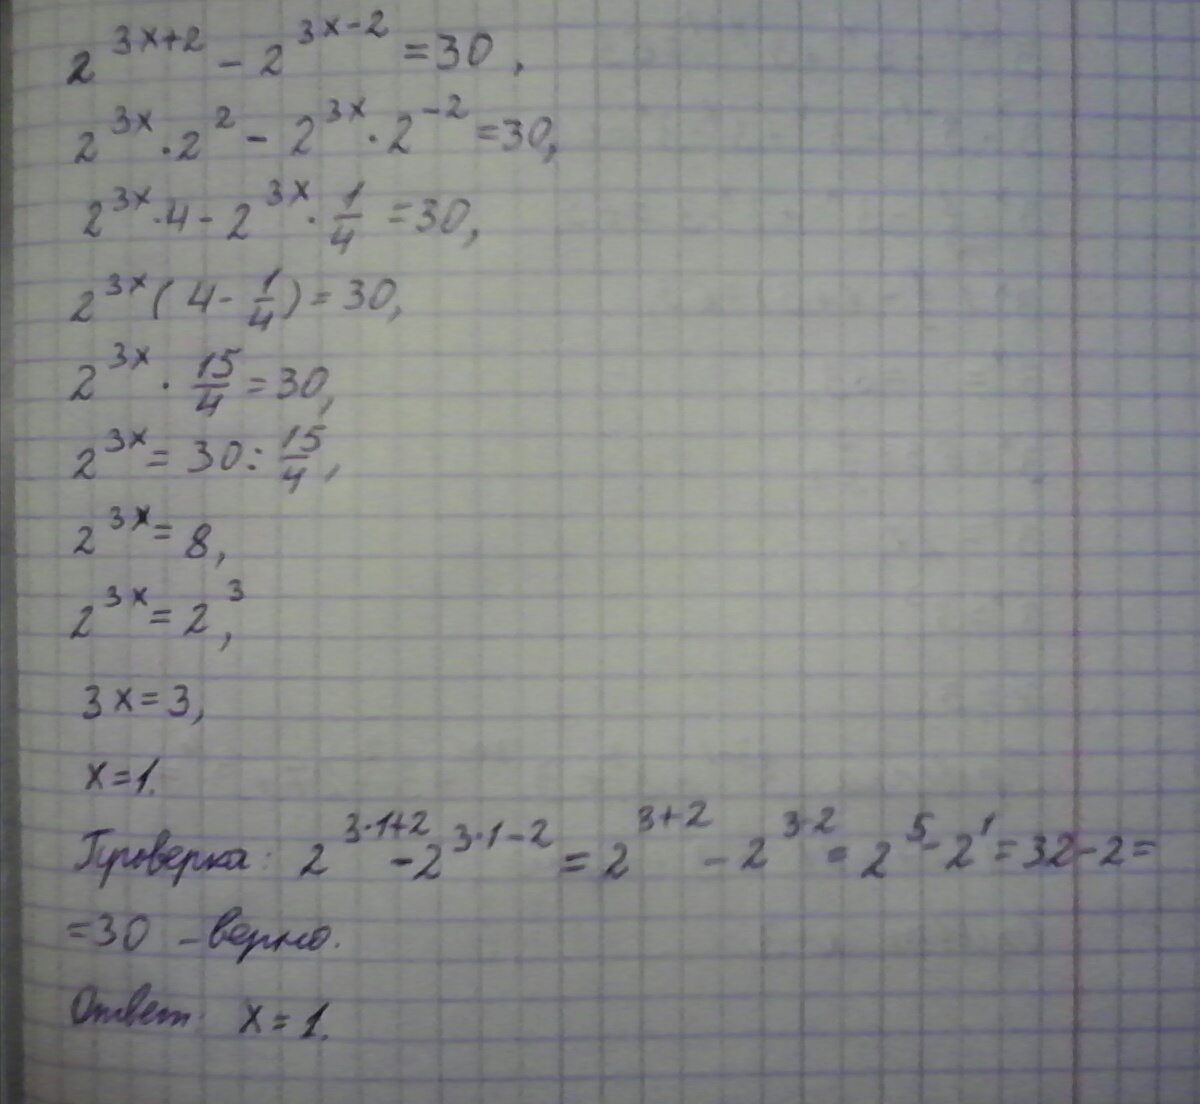 2^(3x+2) - 2^(3x-2) = 30,
2^(3x) · 2^2 - 2^(3x) · 2^(-2) = 30,
2^(3x) · 4 - 2^(3x) · 1/4 = 30,
2^(3x) (4 - 1/4) = 30,
2^(3x) · 15/4 = 30,
2^(3x) = 30 : 15/4,
2^(3x) = 8,
2^(3x) = 2^3,
3x = 3,
x = 1.
Проверка: 2^(3·1+2) - 2^(3·1-2) = 2^(3+2) - 2^(3-2) = 2^5 - 2^1 = 32 - 2 =
= 30 - верно.
Ответ: x = 1.